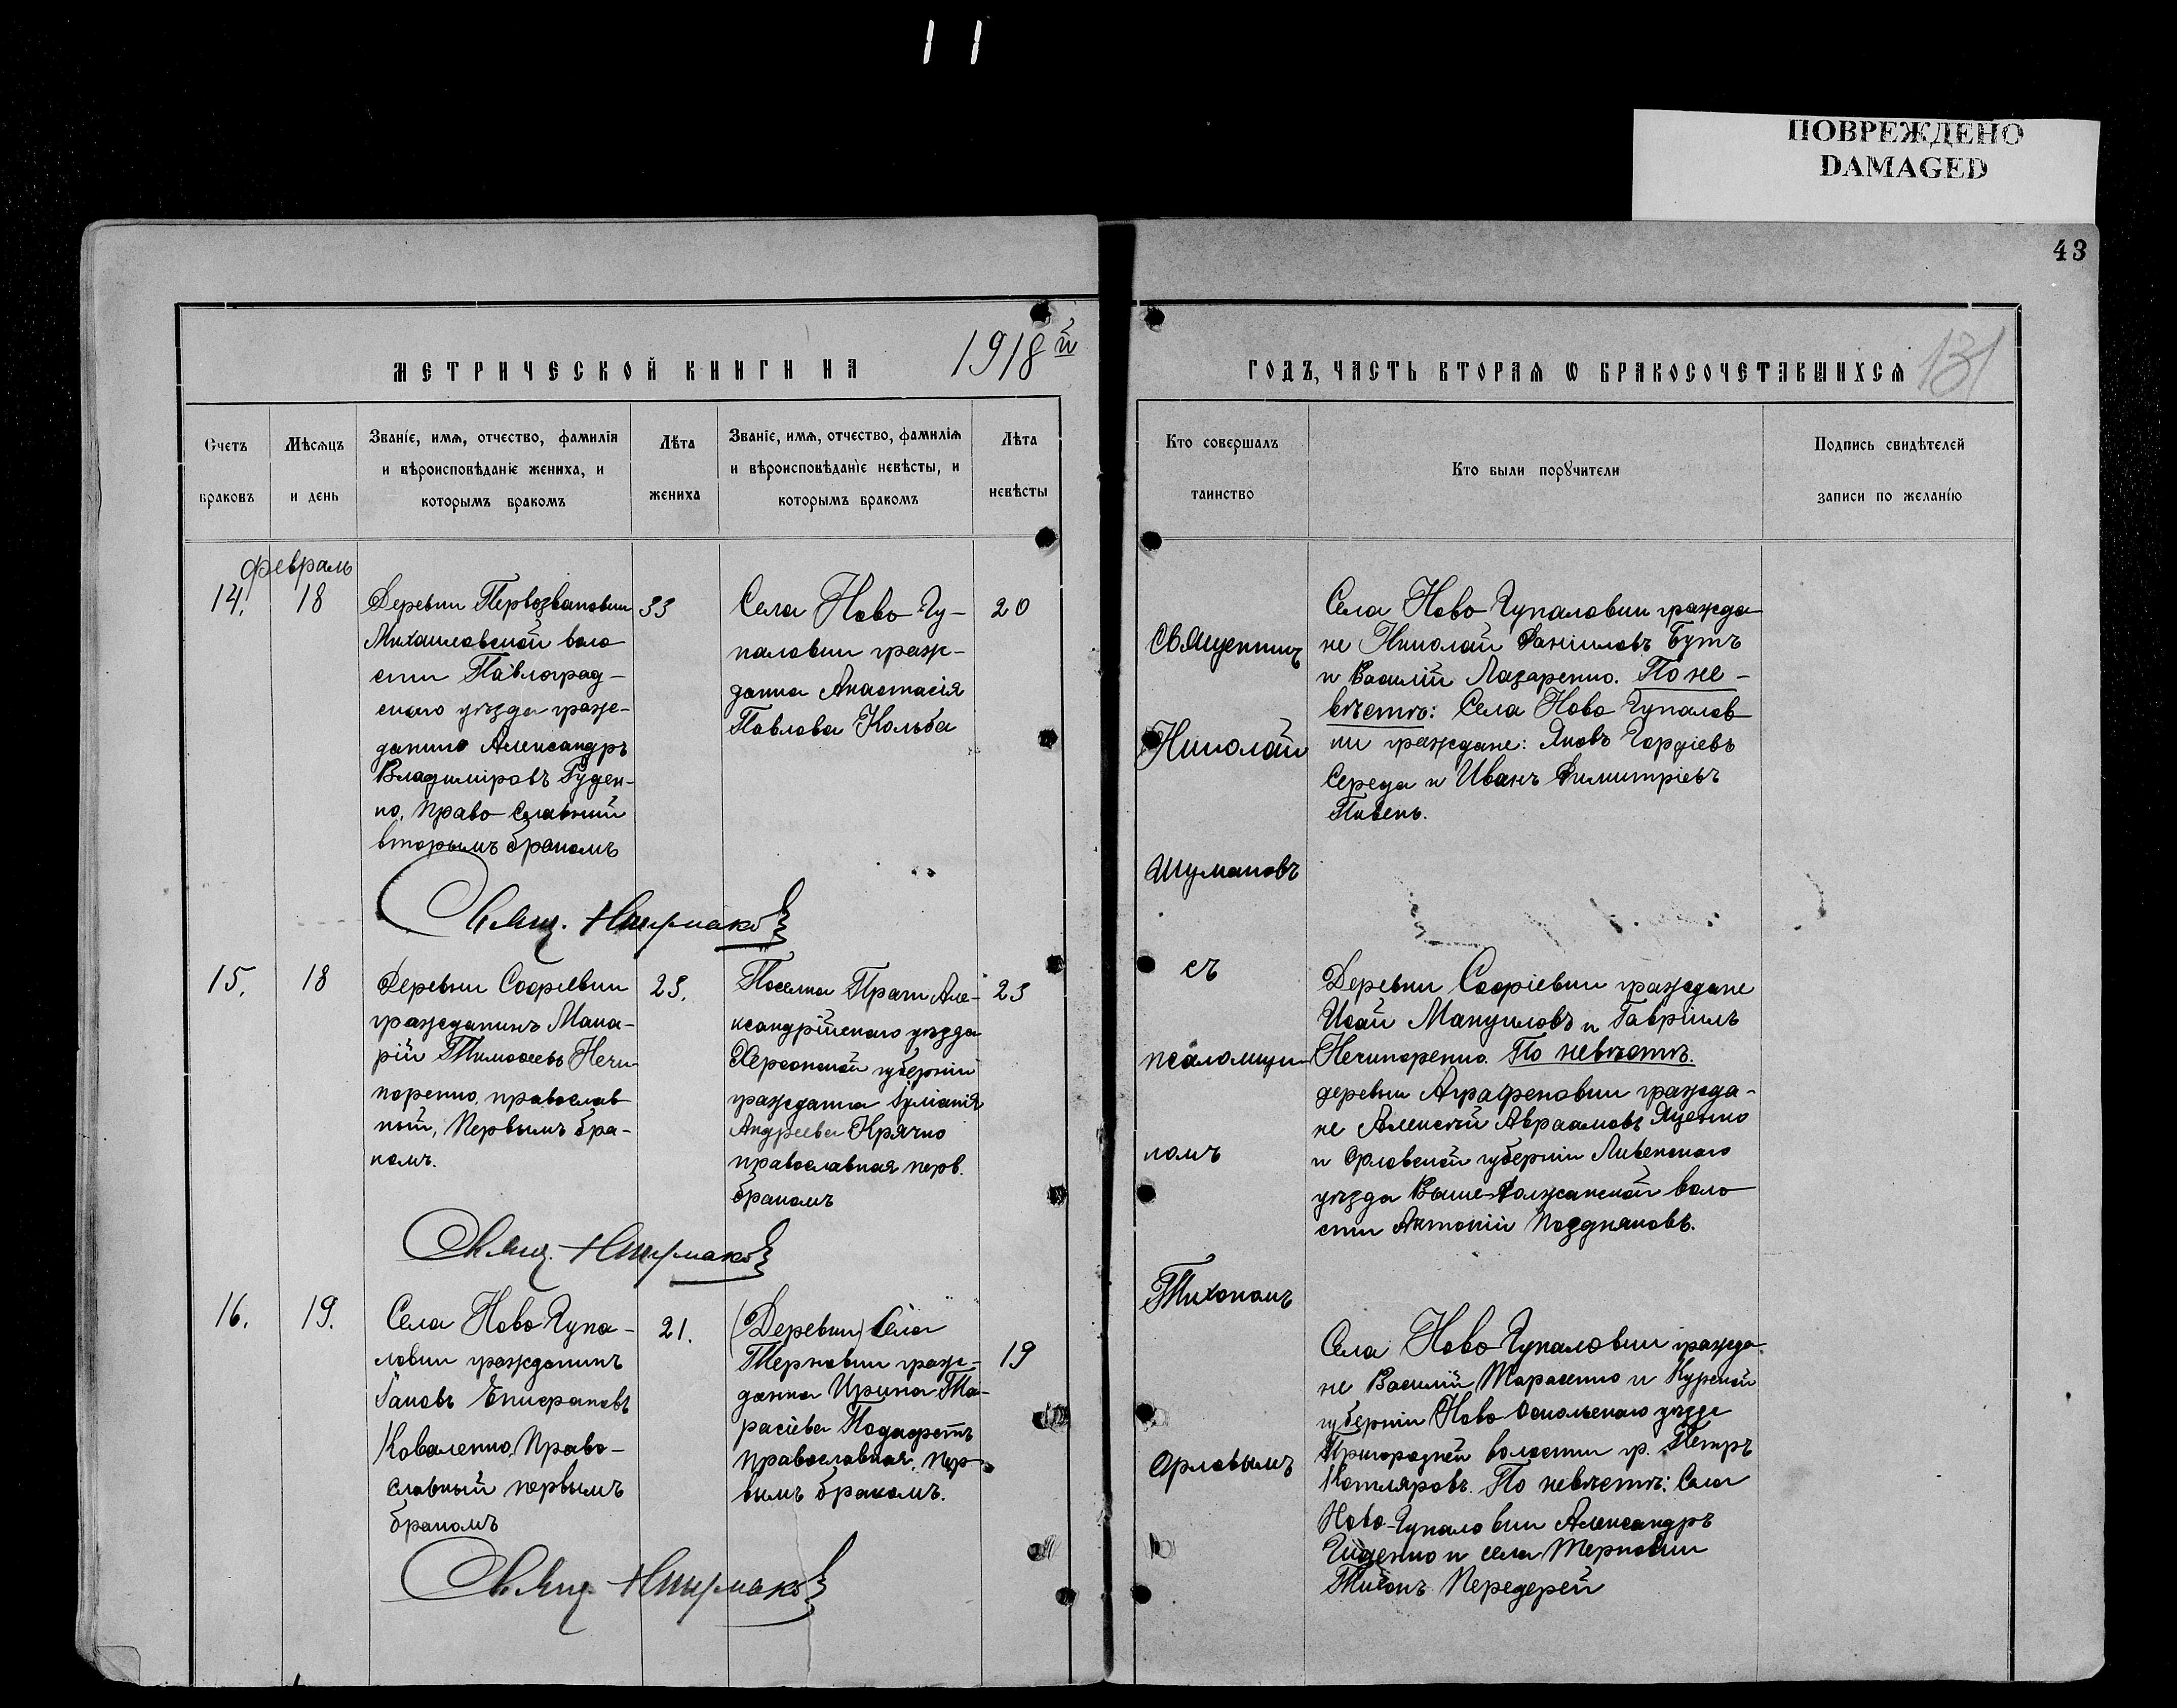 11
ПОВРЕЖДЕНО
DAMAGED
43
МЕТРИЧЕСКОЙ КНИГИ НА 1918й
ГОДЪ, ЧАСТЬ ВТОРАЯ Ѡ БРАКОСОЧЕТАВШИХСЯ
131
Счетъ
браковъ
Мѣсяцъ
и день
Званіе, имя, отчество, фамилія
и вѣроисповѣданіе жениха, и
которымъ бракомъ
Лѣта
жениха
Званіе, имя, отчество, фамилія
и вѣроисповѣданіе невѣсты, и
которымъ бракомъ
Лѣта
невѣсты
Кто совершалъ
таинство
Кто были поручители
Подпись свидѣтелей
записи по желанію
февраль
14.
18
Деревни Первозвановки
Михаиловской воло
сти Павлоград-
скаго уѣзда граж-
данинъ Александръ
Владиміровъ Гуден-
ко, право славный
вторымъ бракомъ
33
Села Ново Гу-
паловки граж-
данка Анастасія
Павлова Кольба
20
Села Ново Гупаловки гражда
не Николай Даніиловъ Бутъ
и Василій Лазаренко. По не-
вѣстѣ: Села Ново Гупалов
ки граждане: Яковъ Гордіевъ
Середа и Иванъ Димитріевъ
Пивень.
Свящ.
15.
18
Деревни Софіевки
гражданинъ Мака-
рій Тимоѳеевъ Нечи-
поренко, православ
ный, первымъ бра-
комъ.
23.
Поселка Праги Але-
ксандрійскаго уѣзда
Херсонской губерніи
гражданка Іуліанія
Андреева Крячко
православная перв.
бракомъ
23
Деревни Софіевки граждане
Исай Мануиловъ и Гавріилъ
Нечипоренко. По невѣстѣ.
деревни Аграфеновки гражда-
не Алексѣй Авраамовъ Яценко
и Орловской губерніи Ливенскаго
уѣзда Выше-Должанской воло
сти Антоній Поздняковъ.
Свящ.
16.
19.
Села Ново Гупа-
ловки гражданинъ
Іаковъ Епифановъ
Коваленко, право-
славный первымъ
бракомъ
21.
(Деревни) Села
Терновки граж-
данка Ирина Та-
расіева
православная, пер-
вымъ бракомъ.
19
Села Ново Гупаловки гражда
не Василій Тарасенко и Курской
губерніи Ново Оскольскаго уѣзда
Пригородней волости гр. Петръ
Котляровъ. По невѣстѣ: Села
Ново-Гупаловки Александръ
и села Терновки
Тихонъ Передерей
Свящ.
Священникъ
Николай
Шумаковъ
съ
псаломщи
комъ
Тихономъ
Орловымъ